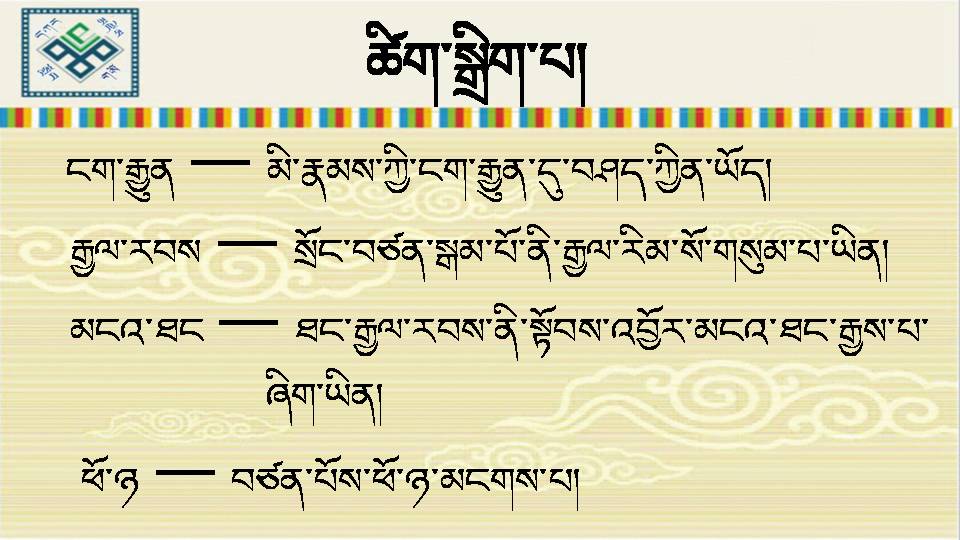 ཚིག་སྒྲིག་པ།
ངག་རྒྱུན — མི་རྣམས་ཀྱི་ངག་རྒྱུན་དུ་བཤད་ཀྱིན་ཡོད།
རྒྱལ་རབས — སྲོང་བཙན་སྒམ་པོ་ནི་རྒྱལ་རིམ་སོ་གསུམ་པ་ཡིན།
མངའ་ཐང — ཐང་རྒྱལ་རབས་ནི་སྟོབས་འབྱོར་མངའ་ཐང་རྒྱས་པ་
ཞིག་ཡིན།
ཕོ་ཉ — བཙན་པོས་ཕོ་ཉ་མངགས་པ།